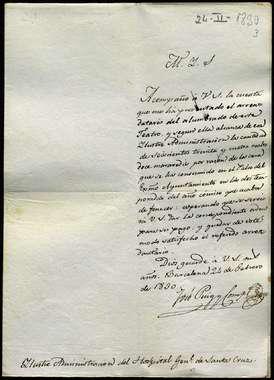 24-II-1830
3
M. I. S
Acompaño à V. S. la cuenta
que me ha presentado el arren-
datario del alumbrado de este
Teatro, y segun ella alcanza de esa
Ilustre Administracion la cantidad
de seiscientos treinta y
doce maravedis por razon de las
que se han consumido en el Palco del
Exmo Ayuntamiento en las dos tem-
poradas del año comico que acaba
de fenecer: esperando que se servi-
rà V. S. dar la correspondiente orden
para su pago, y quede de este
modo satisfecho el referido arren-
datario
Dios guarde à V. S. m.s
años. Barcelona 24 de Febrero
de 1830.
José Puig y
Ilustre Administracion del Hospital Gen.l de Santa Cruz